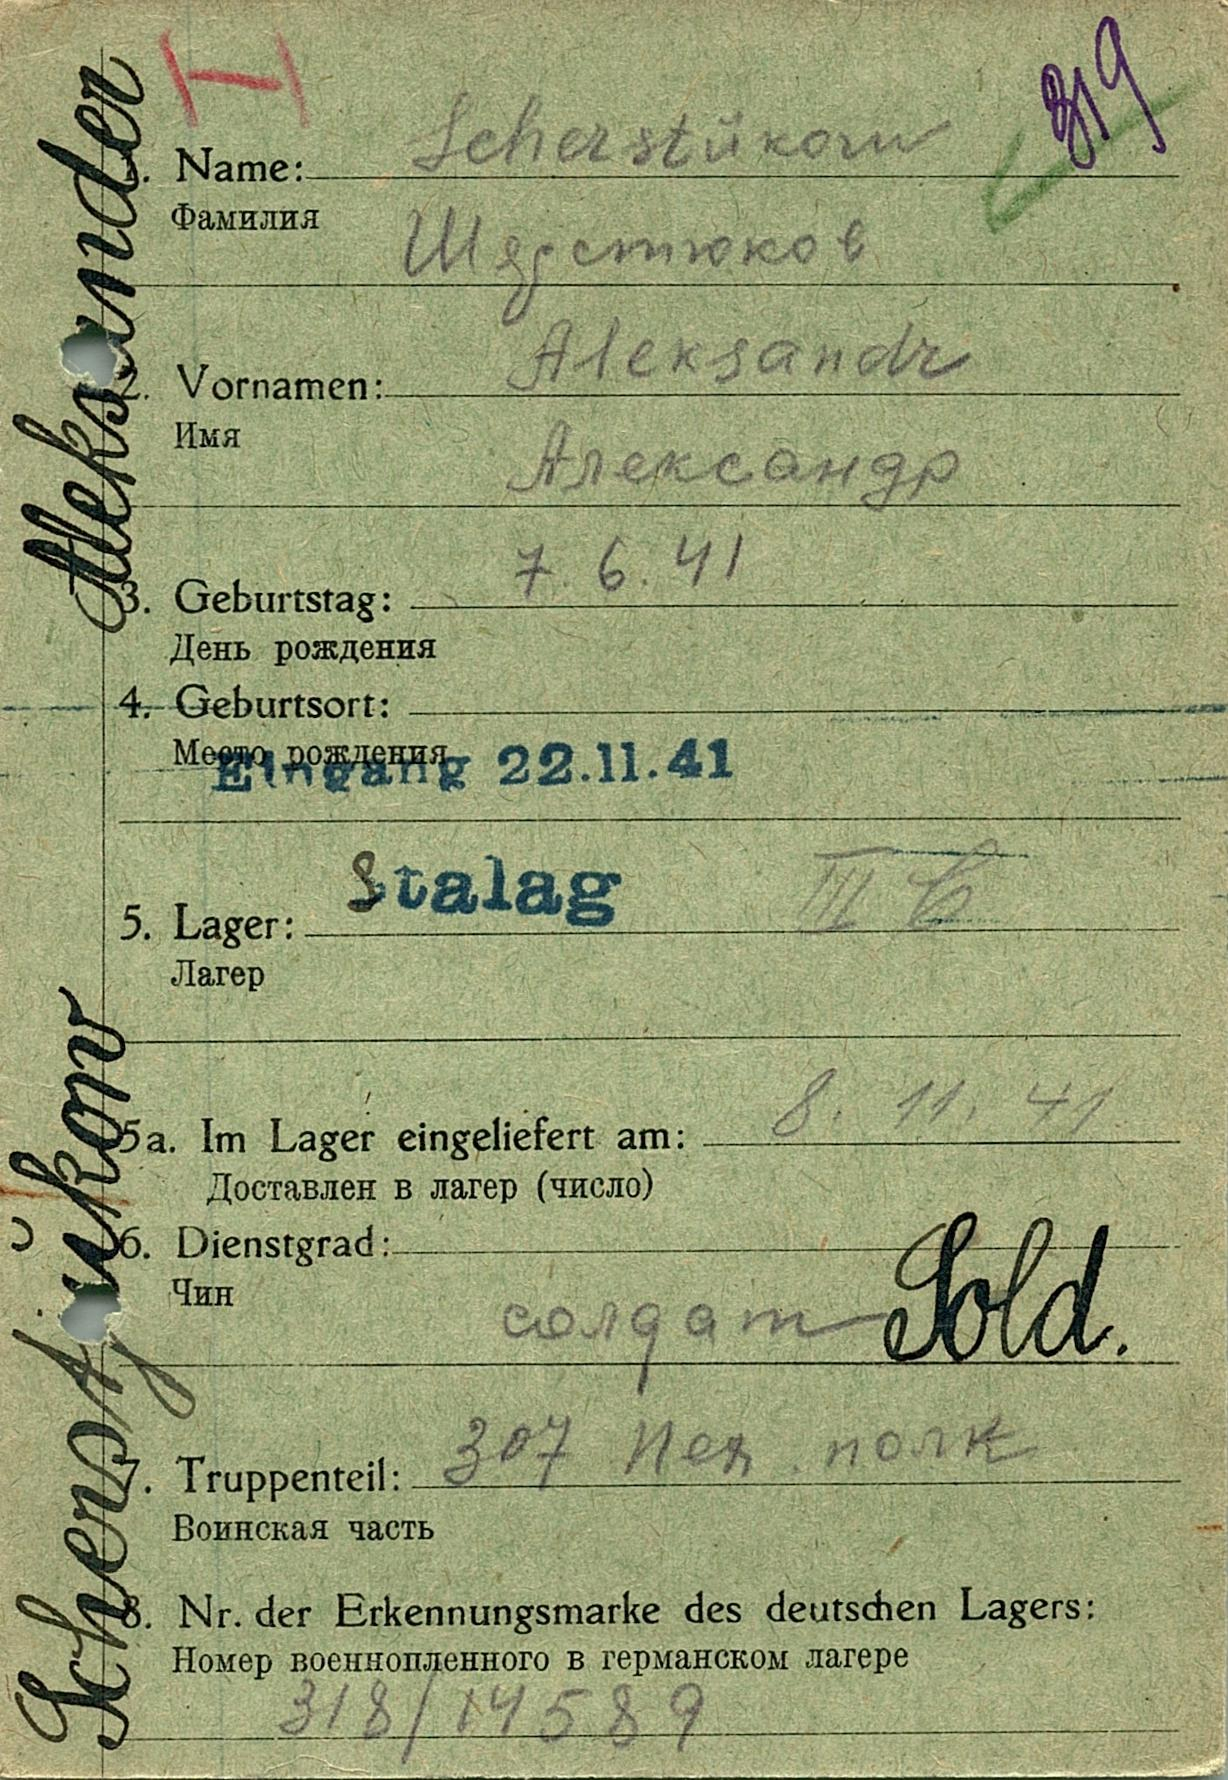 319
1. Name: Scherstükow
Фамилия
Шерстюков
2. Vornamen: Aleksandr
Имя
Александр
3. Geburtstag: 7.6.41
День рождения
4. Geburtsort:
Место рождения
Eingang 22.11.41
5. Lager: Stalag III
Лагер
5a. Im Lager eingeliefert am: 8. 11. 41
Доставлен в лагер (число)
6. Dienstgrad:
Чин
солдат Sold.
7. Truppenteil: 307 пех. полк
Воинская часть
8. Nr. der Erkennungsmarke des deutschen Lagers:
Номер военнопленного в германском лагере
318/14589
Scherstjukow Aleksander